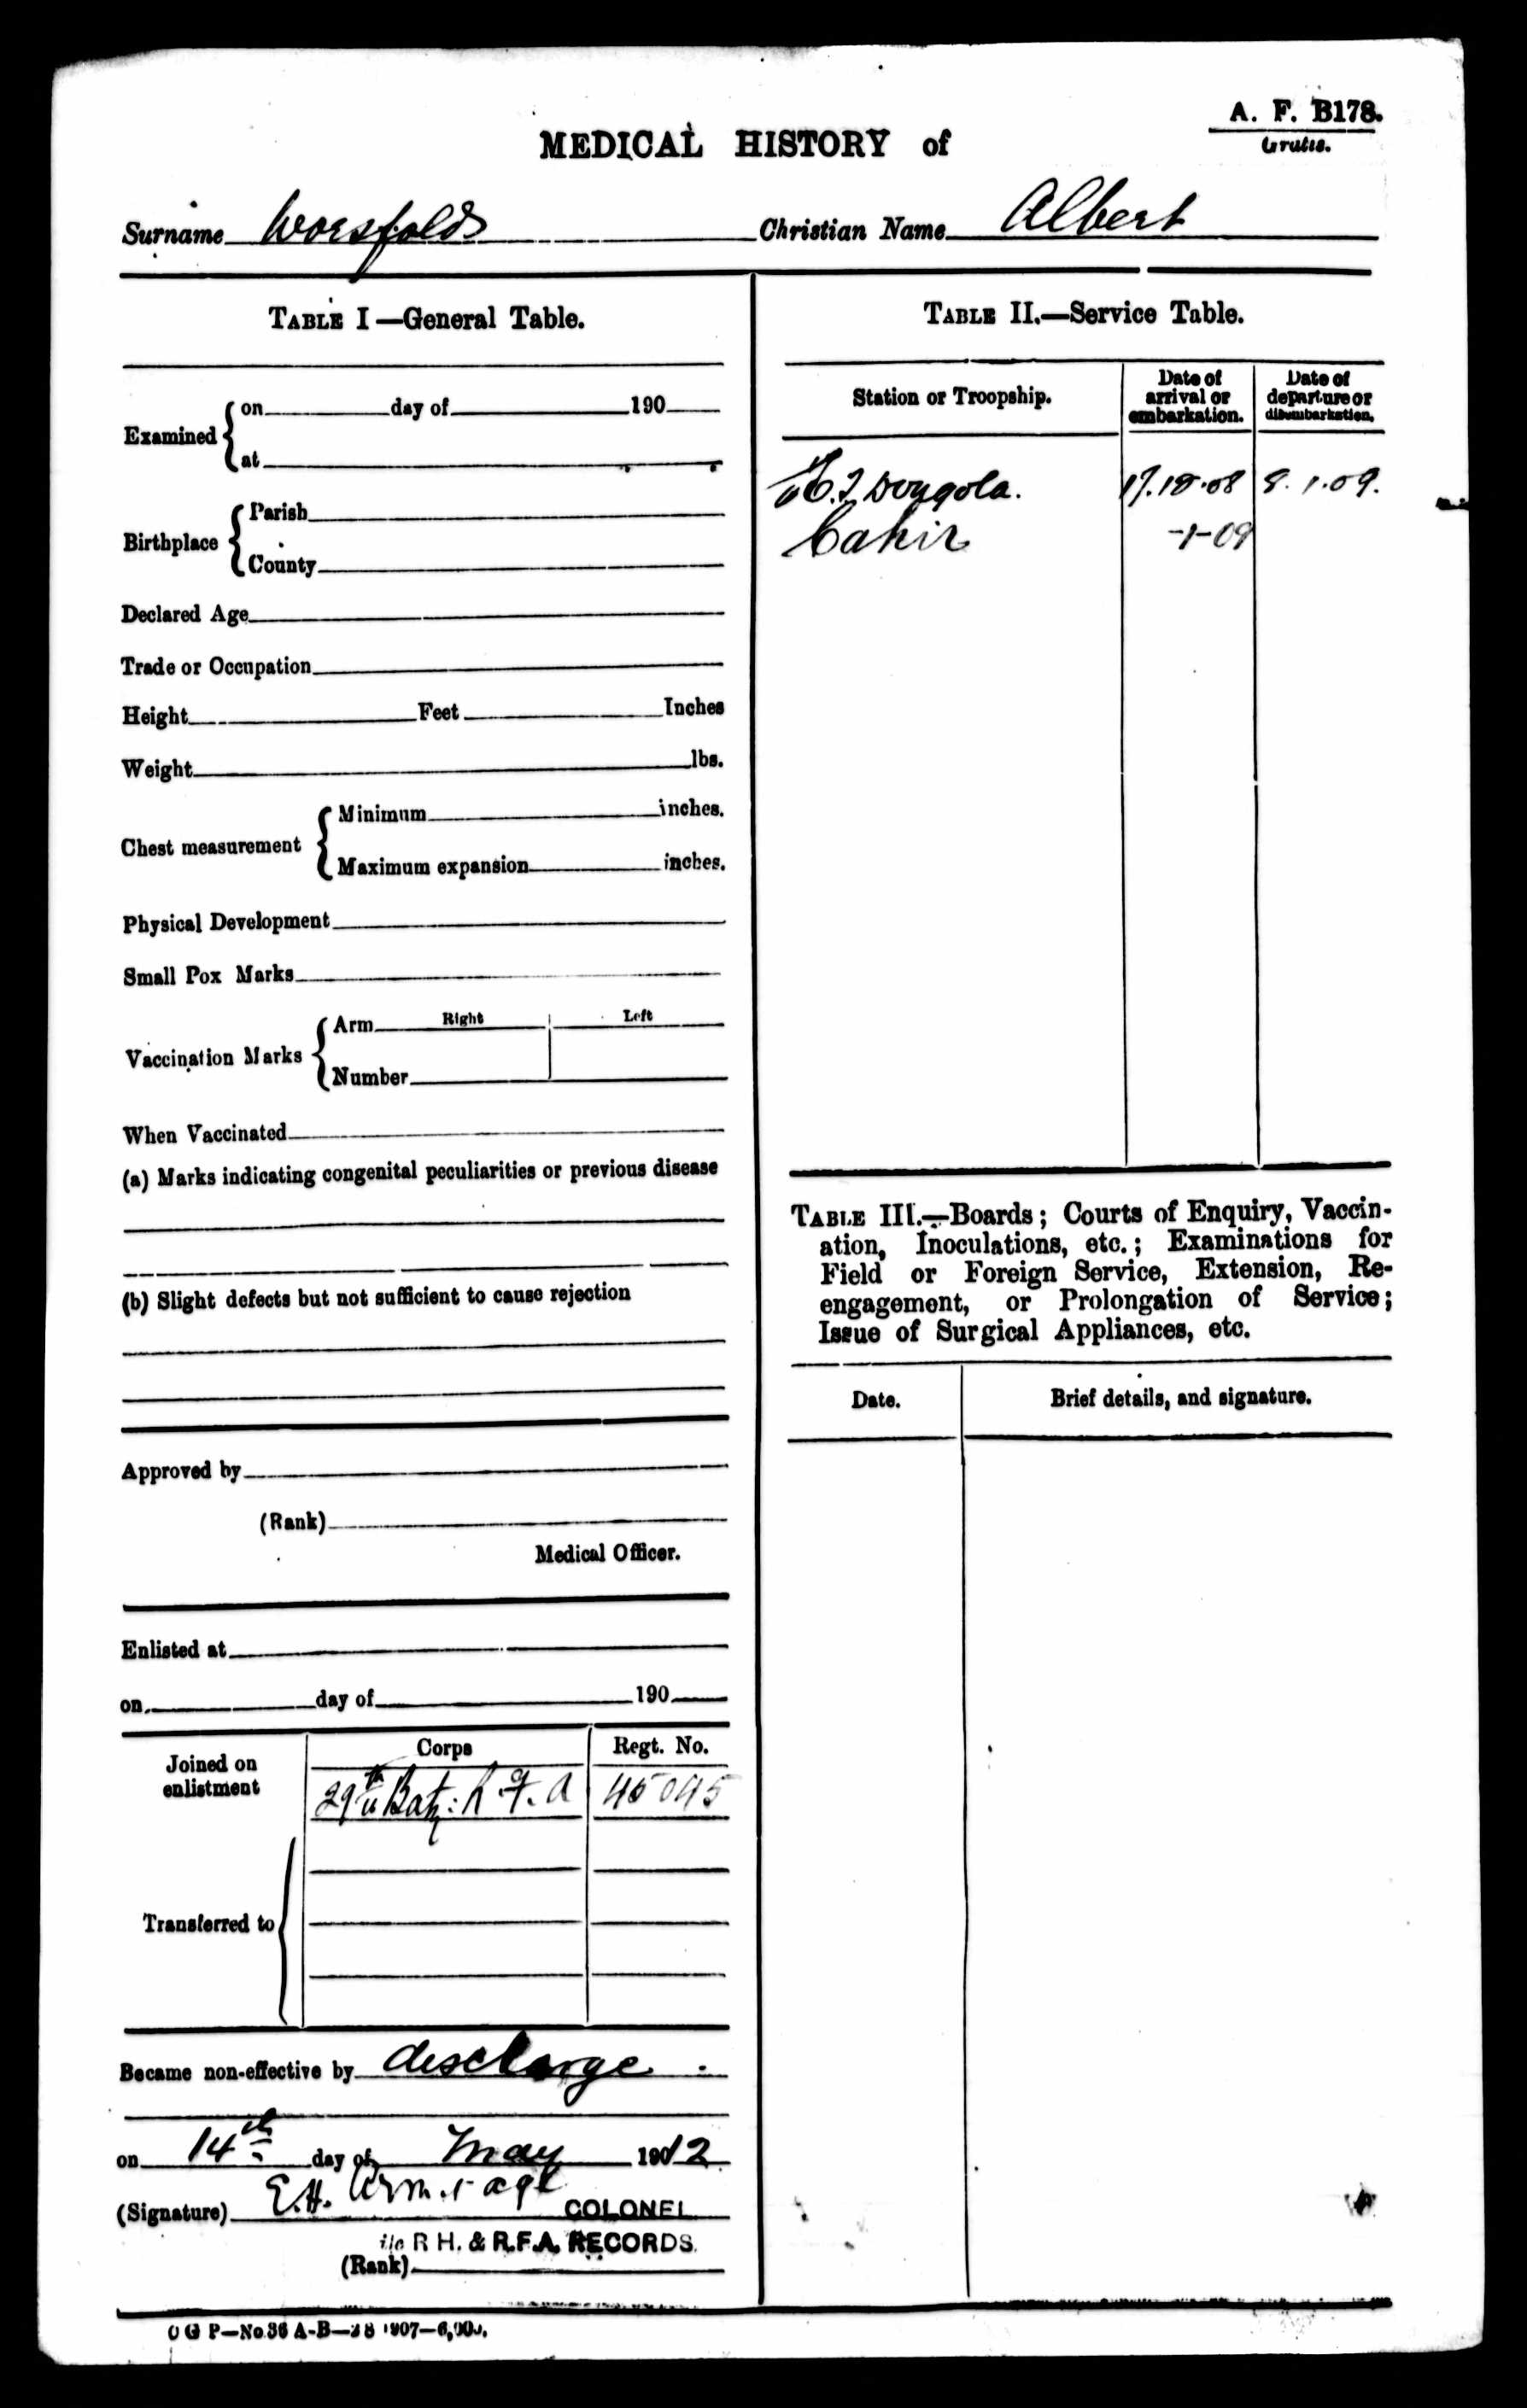 A. F. B178.
Gratis.
MEDICAL HISTORY of
Surname Worsfold Christian Name Albert
TABLE I—General Table.
Examined on day of 190
at
Birthplace Parish
County
Declared Age
Trade or Occupation
Height Feet Inches
Weight lbs.
Chest measurement Minimum inches.
Maximum expansion inches.
Physical Development
Small Pox Marks
Vaccination Marks Arm Right Left
Number
When Vaccinated
(a) Marks indicating congenital peculiarities or previous disease
(b) Slight defects but not sufficient to cause rejection
Approved by
(Rank)
Medical Officer.
Enlisted at
on day of 190
Corps Regt. No.
Joined on enlistment 29th Baty: R.F.A 45045
Transferred to
Became non-effective by discharge.
on 14th day of May 1912
(Signature) E.H. Armitage COLONEL
i/c R H. & R.F.A. RECORDS.
(Rank)
TABLE II.—Service Table.
Station or Troopship. Date of arrival or embarkation. Date of departure or disembarkation.
Dongola. 8.1.09.
Cahir -1-09
TABLE III.—Boards; Courts of Enquiry, Vaccin-
ation, Inoculations, etc.; Examinations for
Field or Foreign Service, Extension, Re-
engagement, or Prolongation of Service;
Issue of Surgical Appliances, etc.
Date. Brief details, and signature.